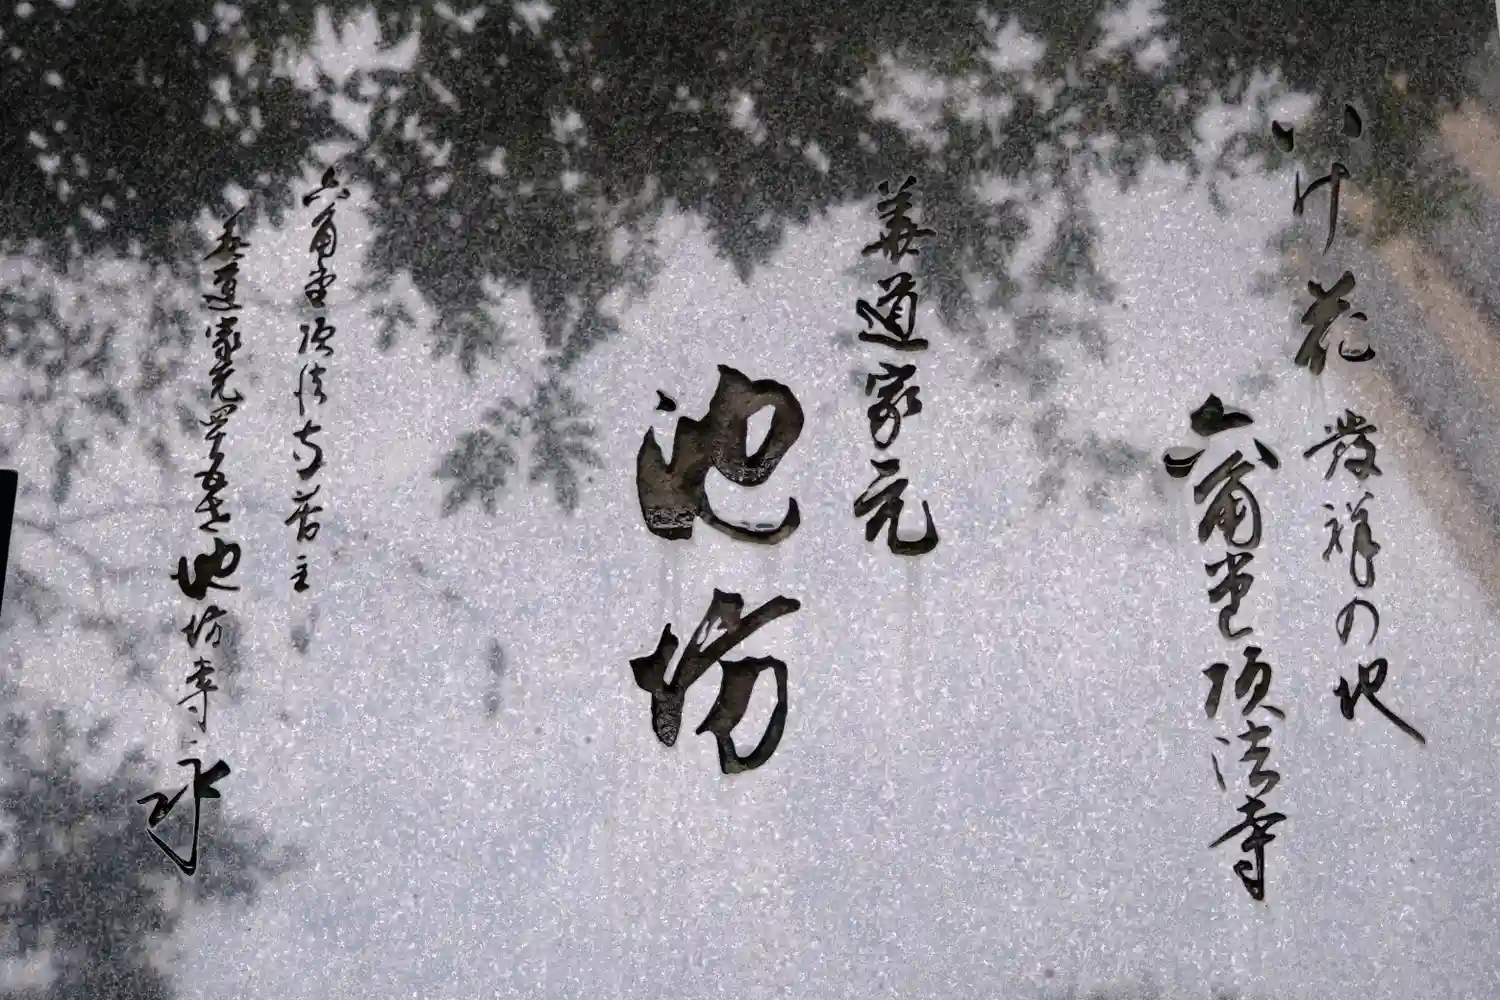 いけ花発祥の地
六角堂頂法寺
華道家元
池坊
六角堂頂法寺管主
華道家元四十五世池坊専永